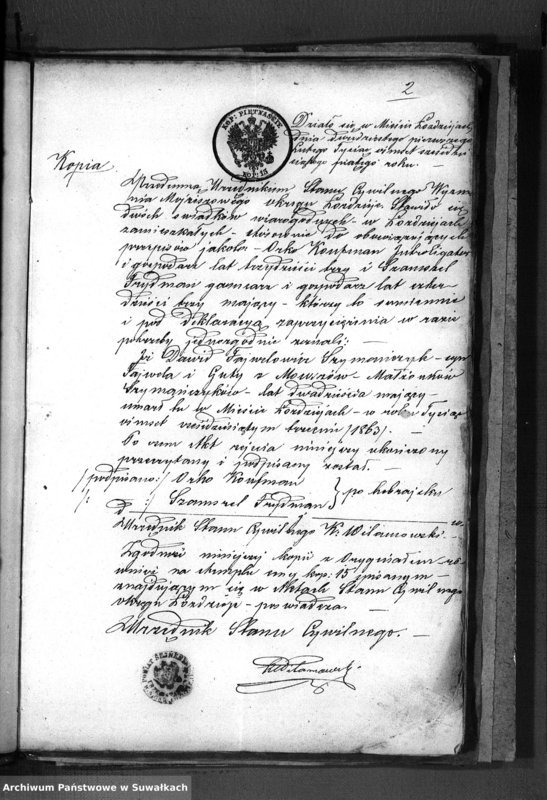 2
KOP: PIĘTNAŚCIE
KOP. 15
Działo się w Mieście Łoździejach
dnia dwudziestego pierwszego
Lutego Tysiąc ośmset sześćdzie
siątego piątego roku.
Kopia
Przedemną Urzędnikiem Stanu Cywilnego Wyzna
nia Mojżeszowego okręgu Łoździeje. Stawili się
dwóch świadków wiarogodnych w Łoździejach
zamieszkałych stosownie do obowiązujących
przepisów jakoto: Orko Koufman Introligator
i gospodarz lat trzydzieści trzy i Szamszel
Frydman garncarz i gospodarz lat czter
dzieści trzy mający którzy to sumiennie
i pod deklaracyą zaprzysiężenia w razie
potrzeby jednozgodnie zeznali:
Iż Dawid Fajwelowicz Szymańczyk syn
Fajwela i Guty z Małżonków
Szymańczyków lat dwadzieścia mający
umarł tu w Mieście Łoździejach w roku Tysiąc
ośmset sześćdziesiątym trzecim /1863/.
Po czem Akt zejścia niniejszy ukończony
przeczytany i podpisany został.
/podpisano:/ Orko Koufman
Szamszel Frydman } po hebrajsku
Urzędnik Stanu Cywilnego K: Wilamowski.
Zgodność niniejszej kopii z Oryginałem ró
wnież na stemplu ceny kop: 15 spisanym
znajdującym się w Aktach Stanu Cywilnego
okręgu Łoździeje poświadcza.
Urzędnik Stanu Cywilnego.
KWilamowski
Archiwum Państwowe w Suwałkach